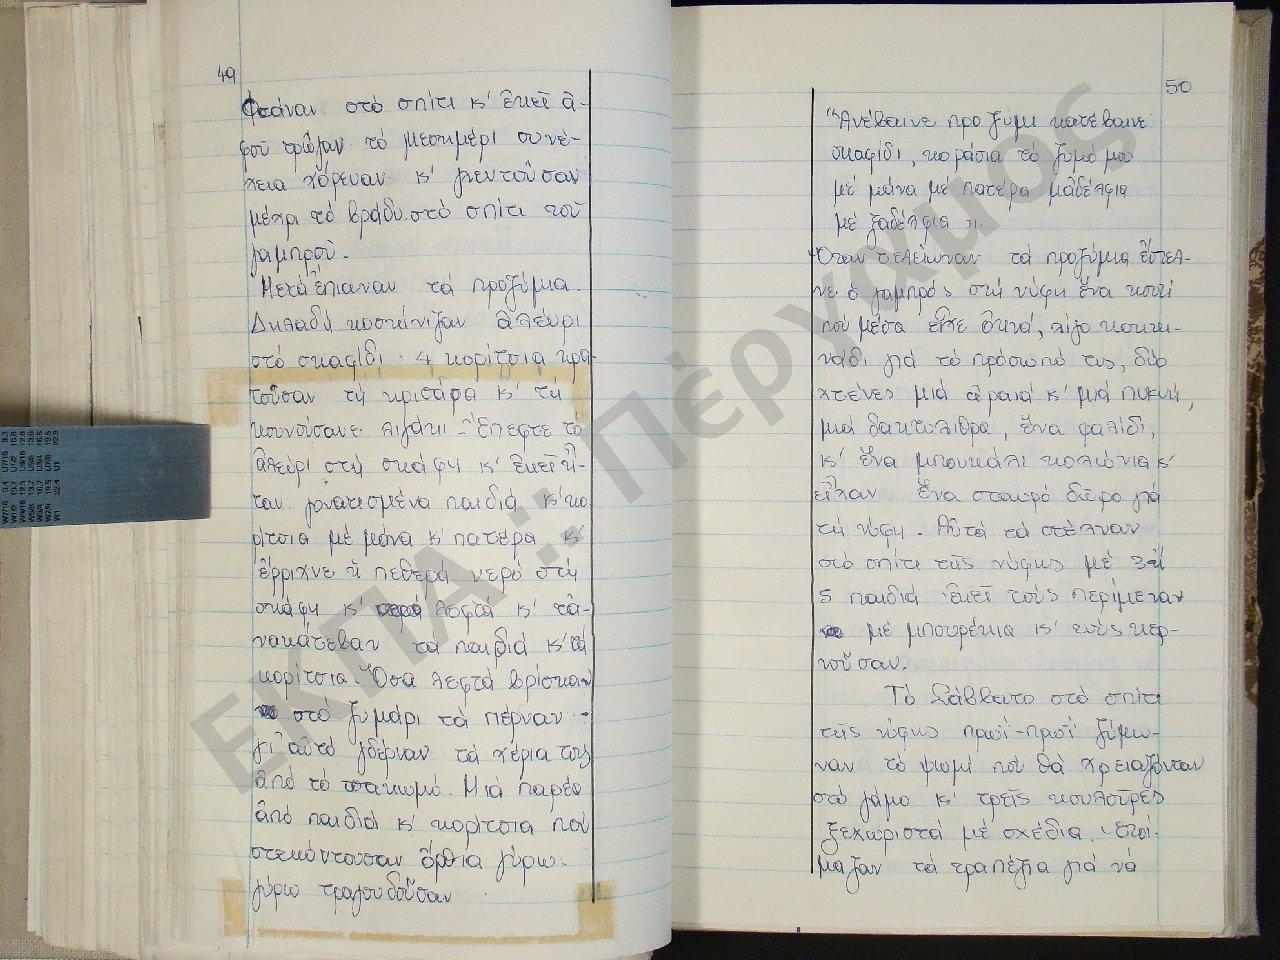 49
Φτάναν στό σπίτι κ' ἐκεῖ ἀ-
φοῦ τρώγαν τό μεσημέρι συνέ-
χεια χόρευαν κ' γλεντοῦσαν
μέχρι τό βράδυ στό σπίτι τοῦ
γαμπροῦ.
Μετά ἔπιαναν τά προζύμια.
Δηλαδή κοσκίνιζαν ἀλεύρι
στό σκαφίδι. 4 κορίτσια κρα-
τοῦσαν τή κρισάρα κ' τή
κουνούσανε λιγάκι. Ἔπεφτε τό
ἀλεύρι στή σκάφη κ' ἐκεῖ ἦ-
ταν γονατισμένα παιδιά κ' κο
ρίτσια μέ μάνα κ' πατέρα κ'
ἔρριχνε ἡ πεθερά νερό στή
σκάφη κ' λεφτά κ' τἀ-
νακάτεβαν τά παιδιά κ' τά
κορίτσια. Ὅσα λεφτά βρίσκαν
στό ζυμάρι τά πέρναν -
γι' αὐτό γδέρναν τά χέρια τους
ἀπό τό τσάκωμό. Μιά παρέα
ἀπό παιδιά κ' κορίτσια πού
στεκόντουσαν ὄρθια γύρω-
γύρω τραγουδοῦσαν
50
"Ἀνέβαινε προζύμι κατέβαινε
σκαφίδι, κοράσια τό ζυμώναν
μέ μάνα μέ πατέρα μἀδέλφια
μέ ξαδέλφια".
Ὅταν τελείωναν τά προζύμια ἔστελ-
νε ὁ γαμπρός στή νύφη ἕνα κουτί
πού μέσα εἶχε ὀκνά, λίγο κοκκι-
νάδι γιά τό πρόσωπό της, δύο
χτένες μιά ἀραιά κ' μιά πυκνή,
μιά δακτυλίθρα, ἕνα ψαλίδι,
κ' ἕνα μπουκάλι κολώνια κ'
εἶχαν ἕνα σταυρό δῶρο γιά
τή νύφη. Αὐτά τά στέλναν
στό σπίτι τῆς νύφης μέ 3 ἤ
5 παιδιά ἐκεῖ τούς περίμεναν
μέ μπουρέκια κ' τούς κερ-
νοῦσαν.
Τό Σάββατο στό σπίτι
τῆς νύφης πρωί-πρωί ζύμω-
ναν τό ψωμί πού θά χρειαζόνταν
στό γάμο κ' τρεῖς κουλοῦρες
ξεχωριστά μέ σχέδια. Ἑτοί-
μαζαν τά τραπέζια γιά νά
ΕΚΠΑ :: Πέργαμος